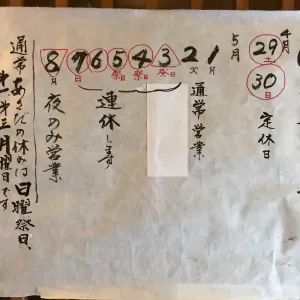 4月
29土
30日
定休日
5月
1月
2火
通常営業
3祭
4祭
5祭
6
7日
連休します
8月
夜のみ営業
通常
の休みは日曜祭日、
第三月曜日です